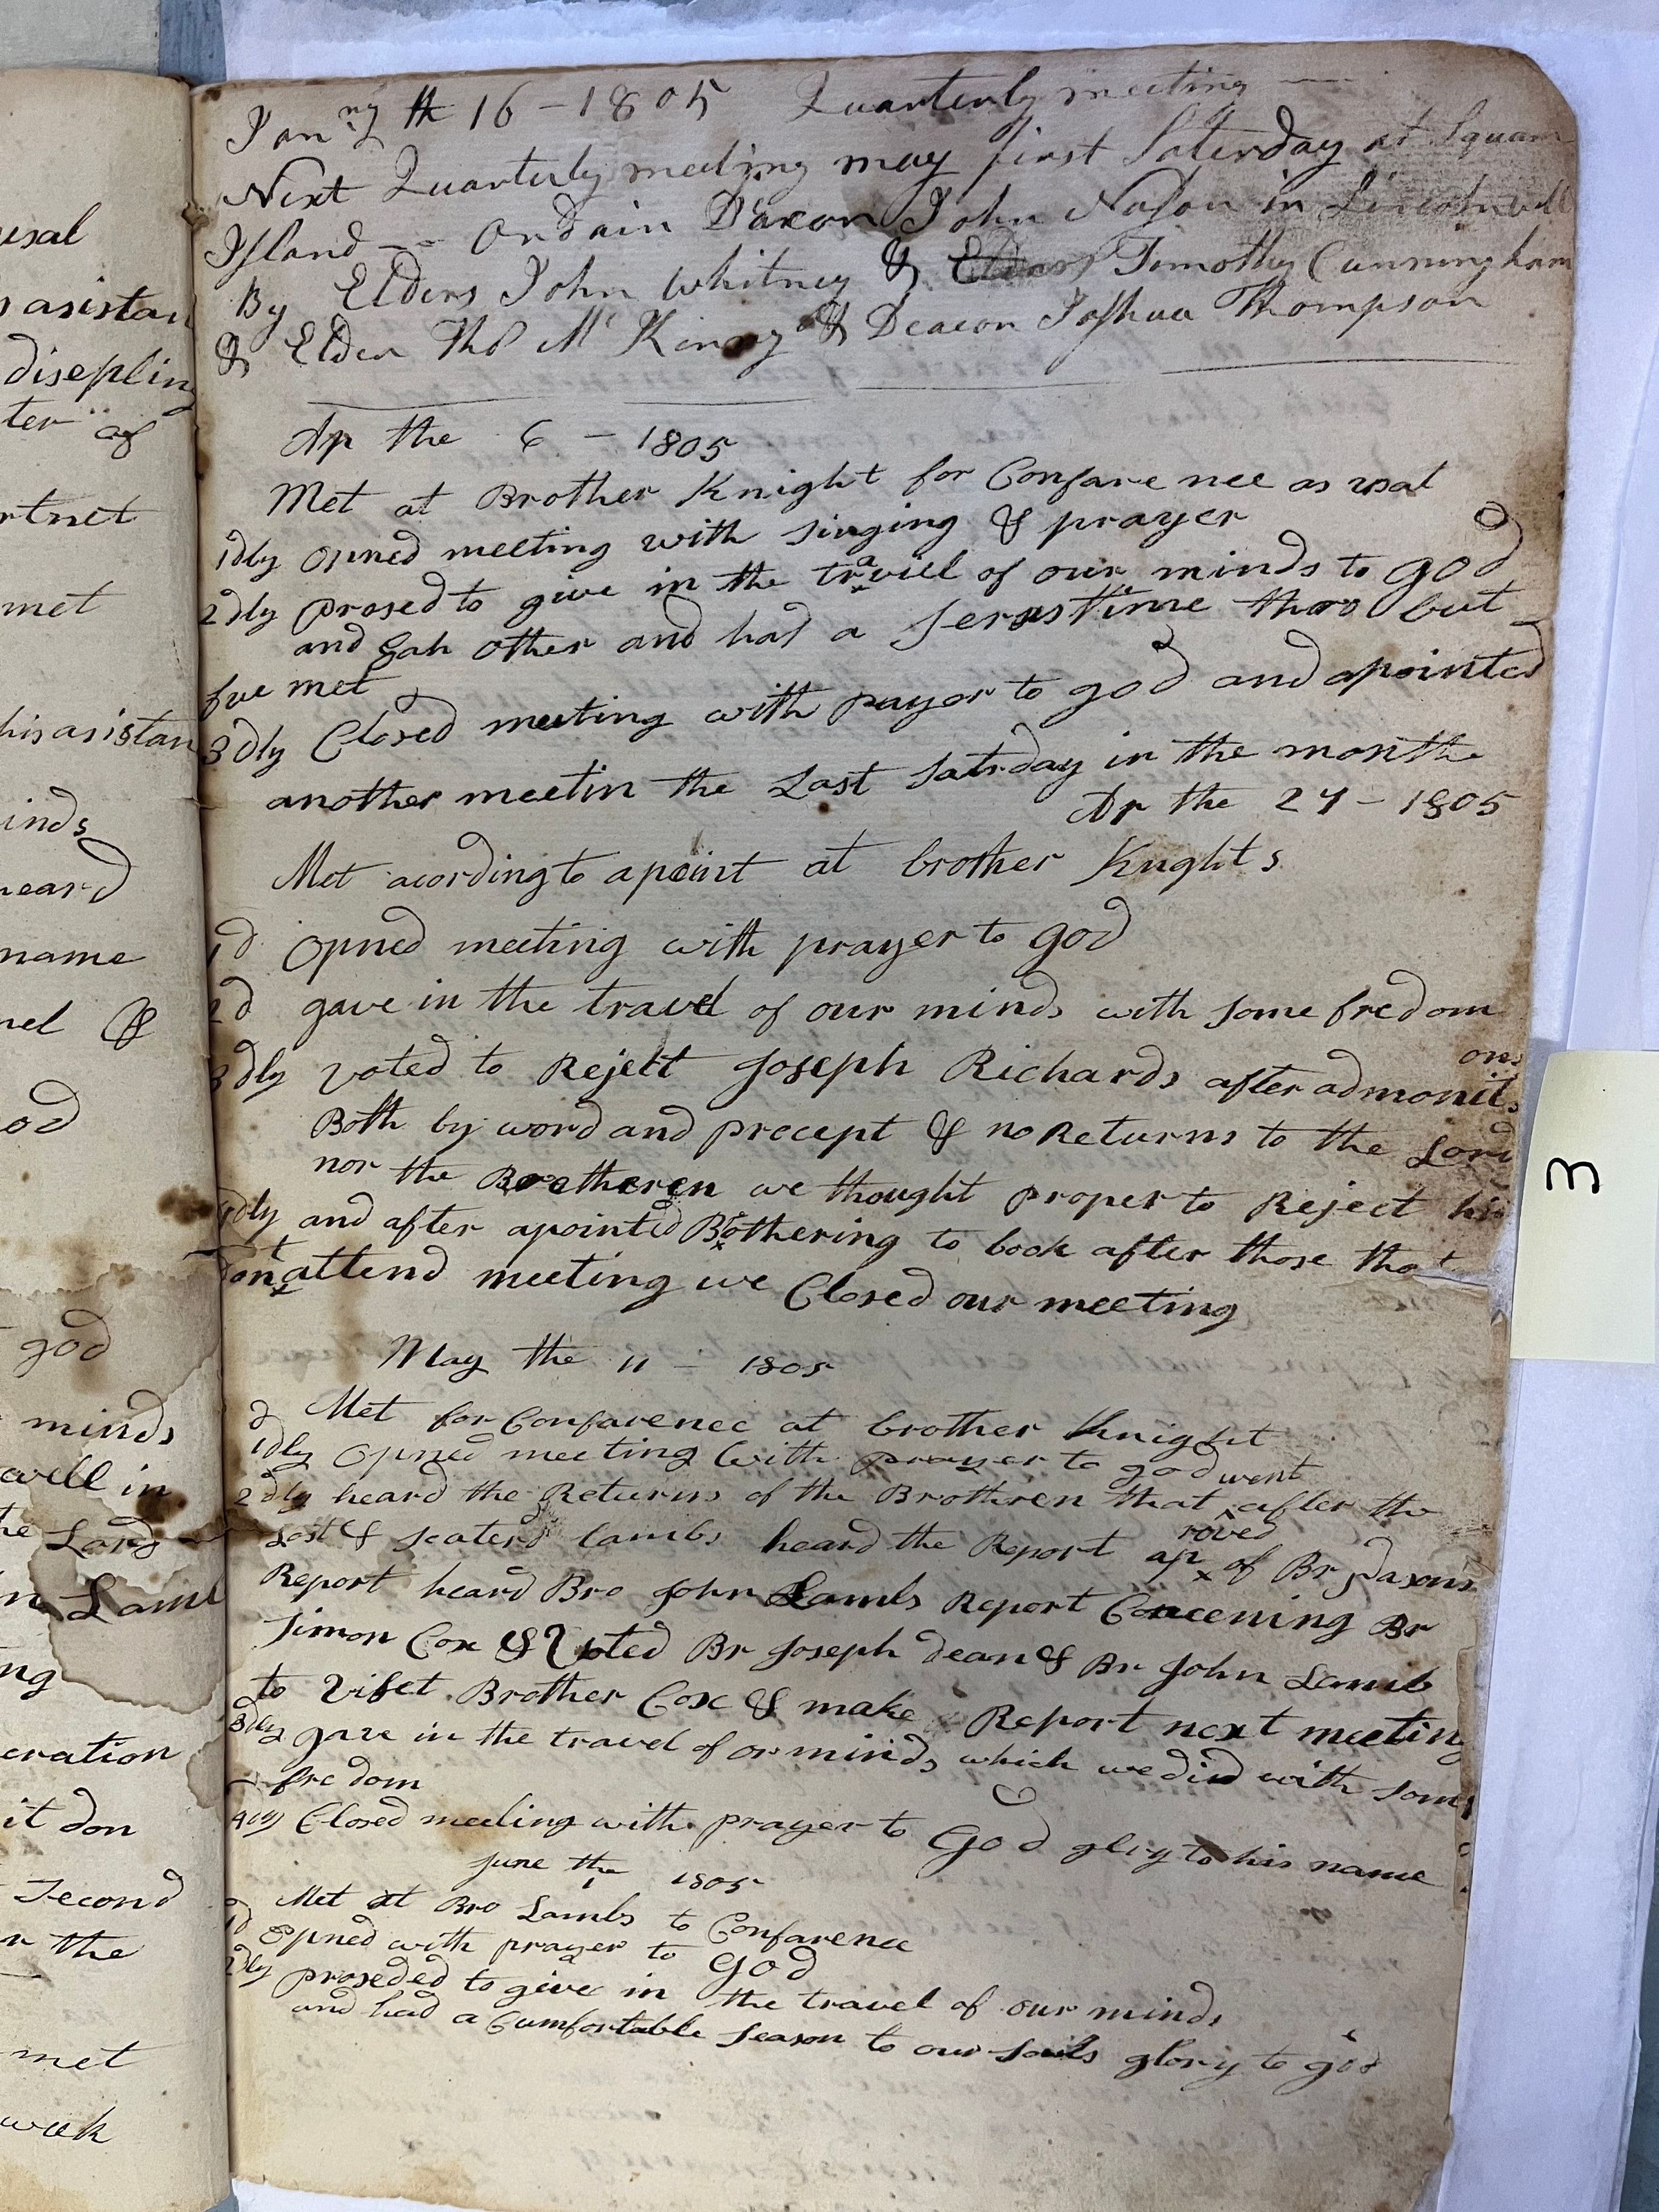 usal
s asistan
diseplin
ter" of
rtnet
met
his asistan
inds
heard
name
nel &
od
god
minds
well in
he Lord
in Lam
ng
eration
it don
Second
r the
met
week
Janry th 16 - 1805 Quarterly meeting
Next Quarterly meeting may first Saterday at Squam
Island -- Ordain Dacon John Nason in Lincolnvill
By Elders John Whitney & Elders Timothy Cunningham
& Elder Tho Mc Kinny & Deacon Joshua Thompson
Ap the 6 - 1805
Met at Brother Knight for Confarence as usal
1dly Opned meeting with singing & prayer
2dly prosed to give in the traviel of our minds to god
and Eah other and had a serus time tho but
fue met
3dly Closed meeting with payer to god and apointed
another meetin the Last Satrday in the month
Ap the 27 - 1805
Met acording to apoint at brother Knghts
1d Opned meeting with prayer to god
2d gave in the travel of our minds with some fredom
3dly voted to Rejett Joseph Richards after admonitions
Both by word and precept & no Returns to the Lord
nor the Bretheren we thought proper to Reject him
4dly and after apointed Brothering to look after those that
dont attend meeting we Closed our meeting
May the 11 - 1805
d Met for Confarence at brother Knight
1dly Opned meeting with prayer to god
2dly heard the Returns of the Brothren that went after the
Lost & scaterd lambs heard the Report aproved of Br Jasons
Report heard Bro John Lambs Report Conceening Br
Simon Cox & Voted Br Joseph dean & Br John Lamb
to Viset Brother Cox & make Report next meeting
3dly gave in the travel of or minds which we did with some
fredom
4ly Closed meeting with prayer to God glory to his name
June the 1 1805
Met at Bro Lambs to Confarence
1d Opned with prayer to God
2dly proseded to give in the travel of our minds
and had a Cumfortable season to our souls glory to god
3